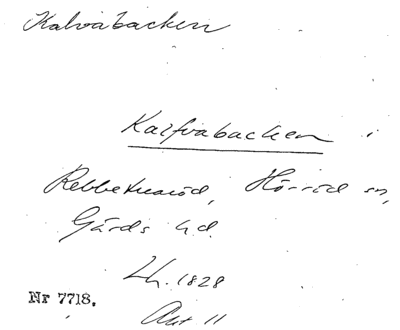 Kalvabacken
Kalfvabacken i
Rebbetuaröd, Hörröd sn,
Gärds hd.
Lh. 1828
Akt 11
Nr 7718.